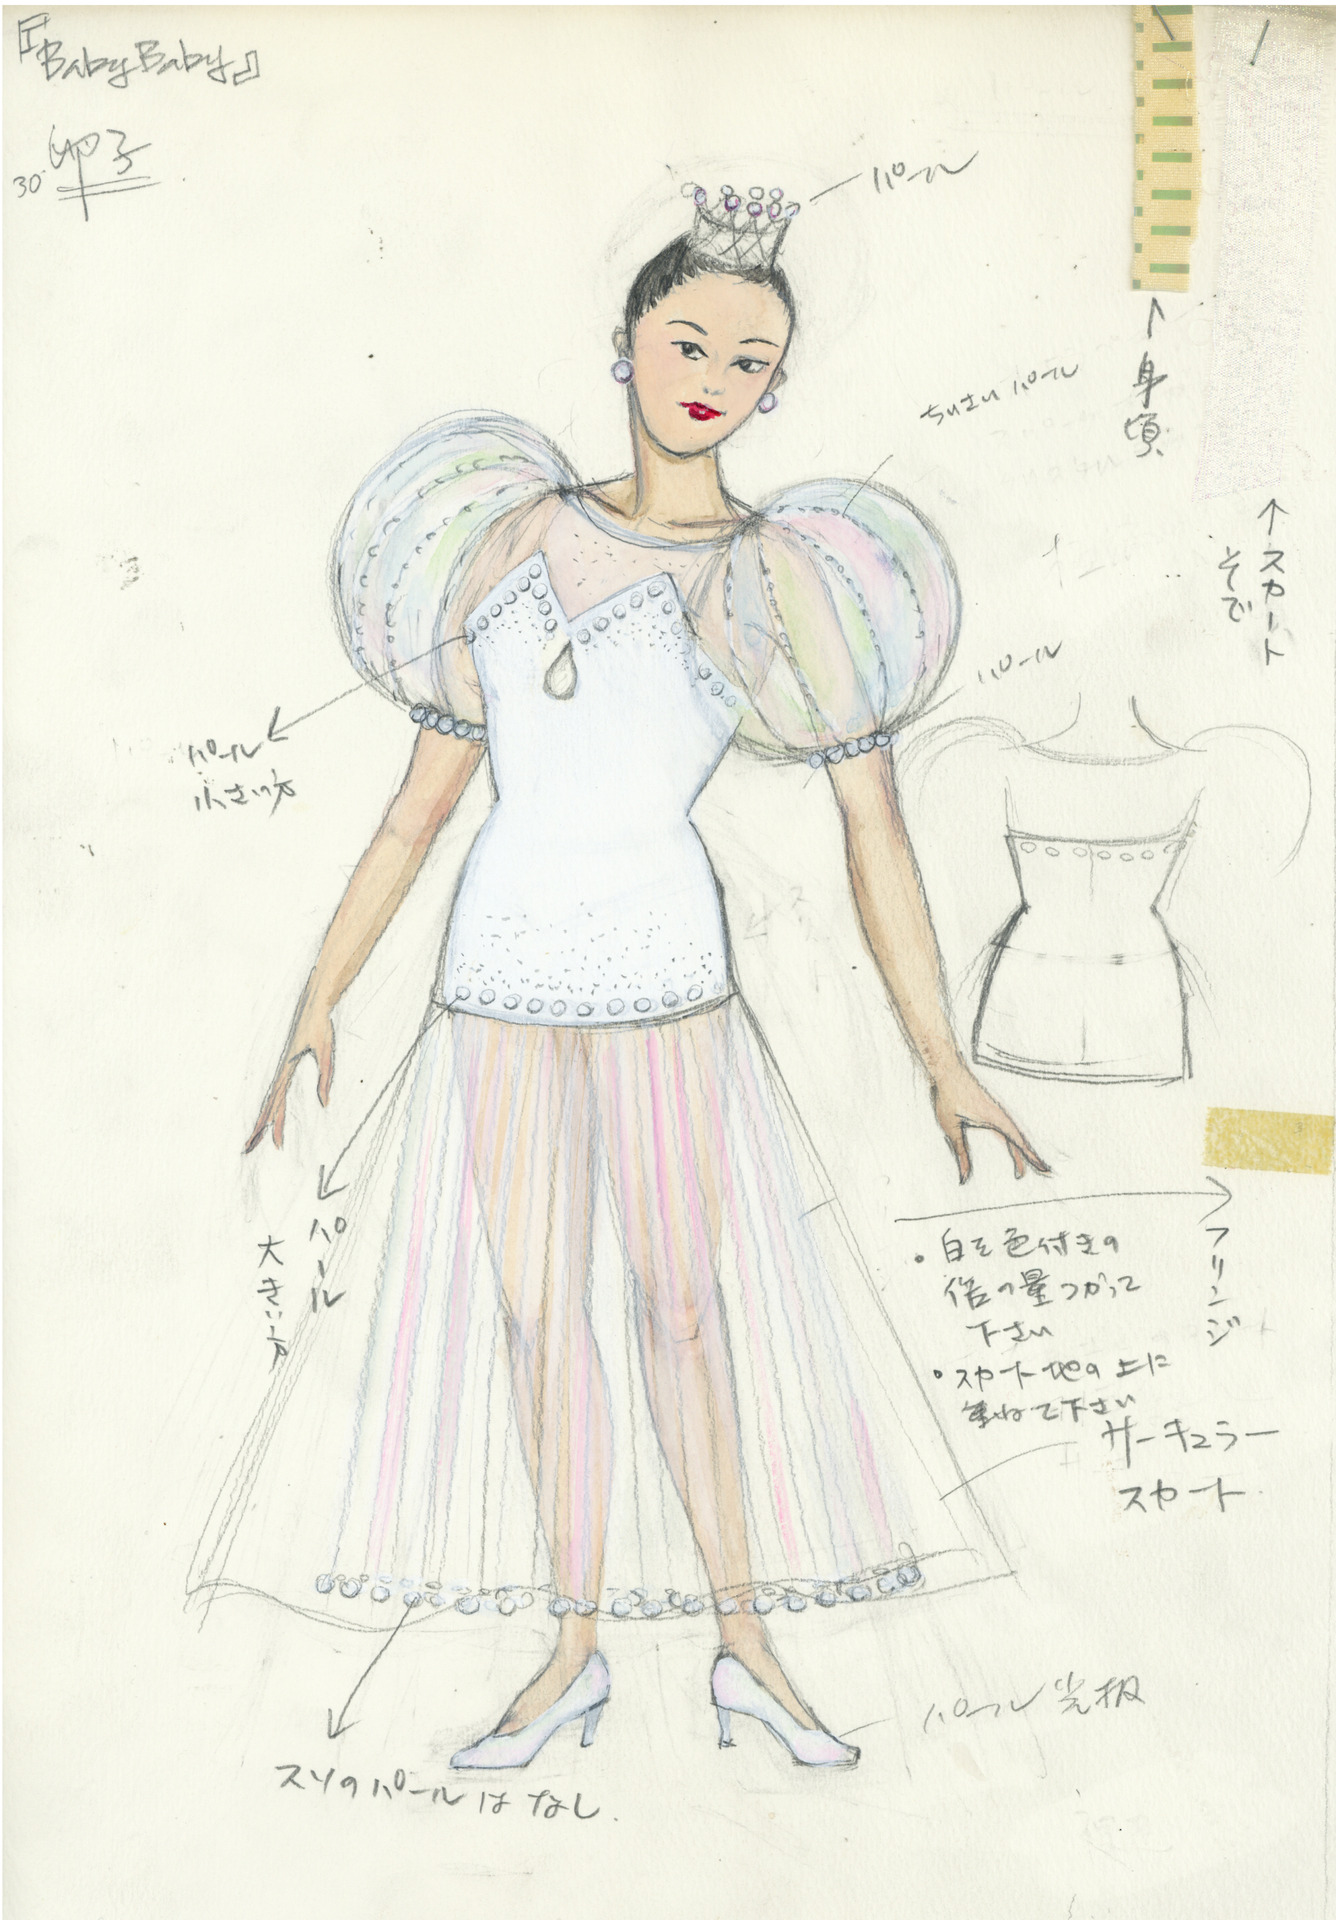 『Baby Baby』
30. 卯子
パール
↑身頃
ちいさいパール
↑スカート
そで
パール
パール
小さい方
パール
大きい方
フリンジ
・白を色付きの
倍の量つかって
下さい
・スカート地の上に
重ねて下さい
サーキュラー
スカート
パール光板
スソのパールはなし.